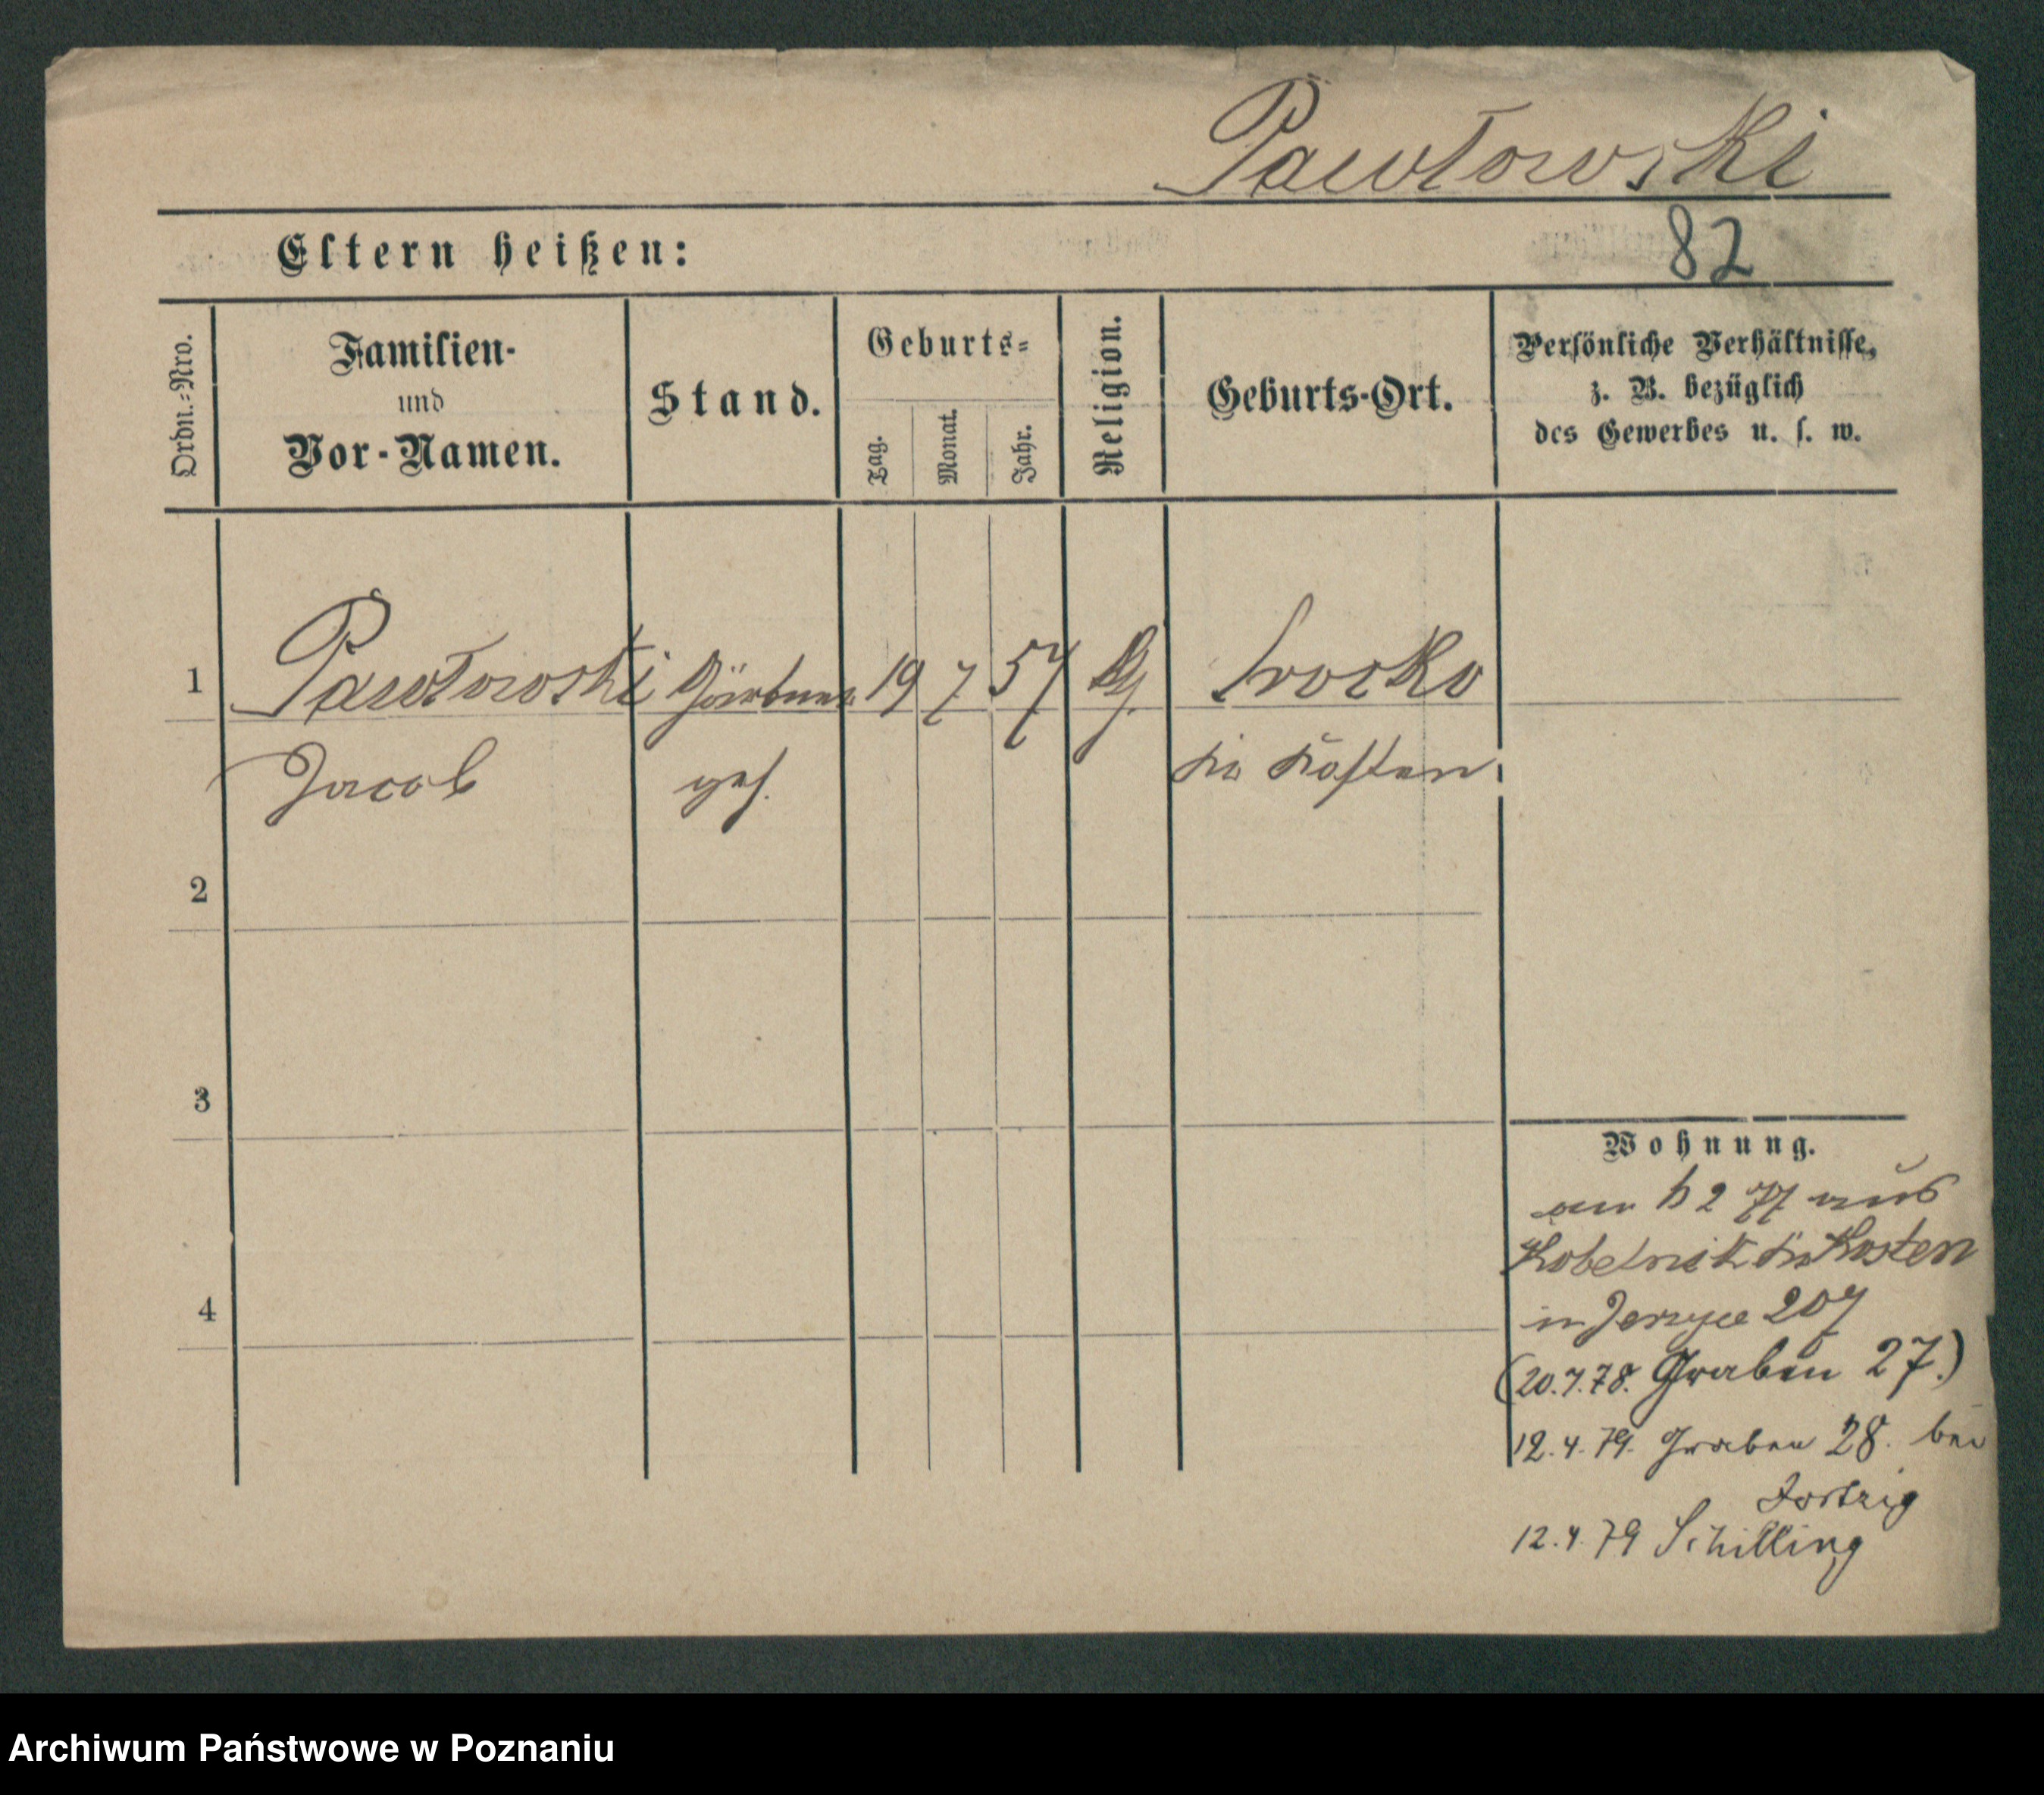 Pawłowski
Eltern heißen:
82
Ordn.-Nro.
Familien-
und
Vor-Namen.
Stand.
Geburts-
Tag.
Monat.
Jahr.
Religion.
Geburts-Ort.
Persönliche Verhältnisse,
z. B. bezüglich
des Gewerbes u. s. w.
1
Pawłowski
19
7
57
Srocko
Jacob
Kr. Kosten
2
3
4
Wohnung.
2 77 aus
Kobelnik Kr Kosten
in 207
(20.7.78. Graben 27.)
12.4.79. Graben 28. bei
12.4.79 Schilling
Archiwum Państwowe w Poznaniu